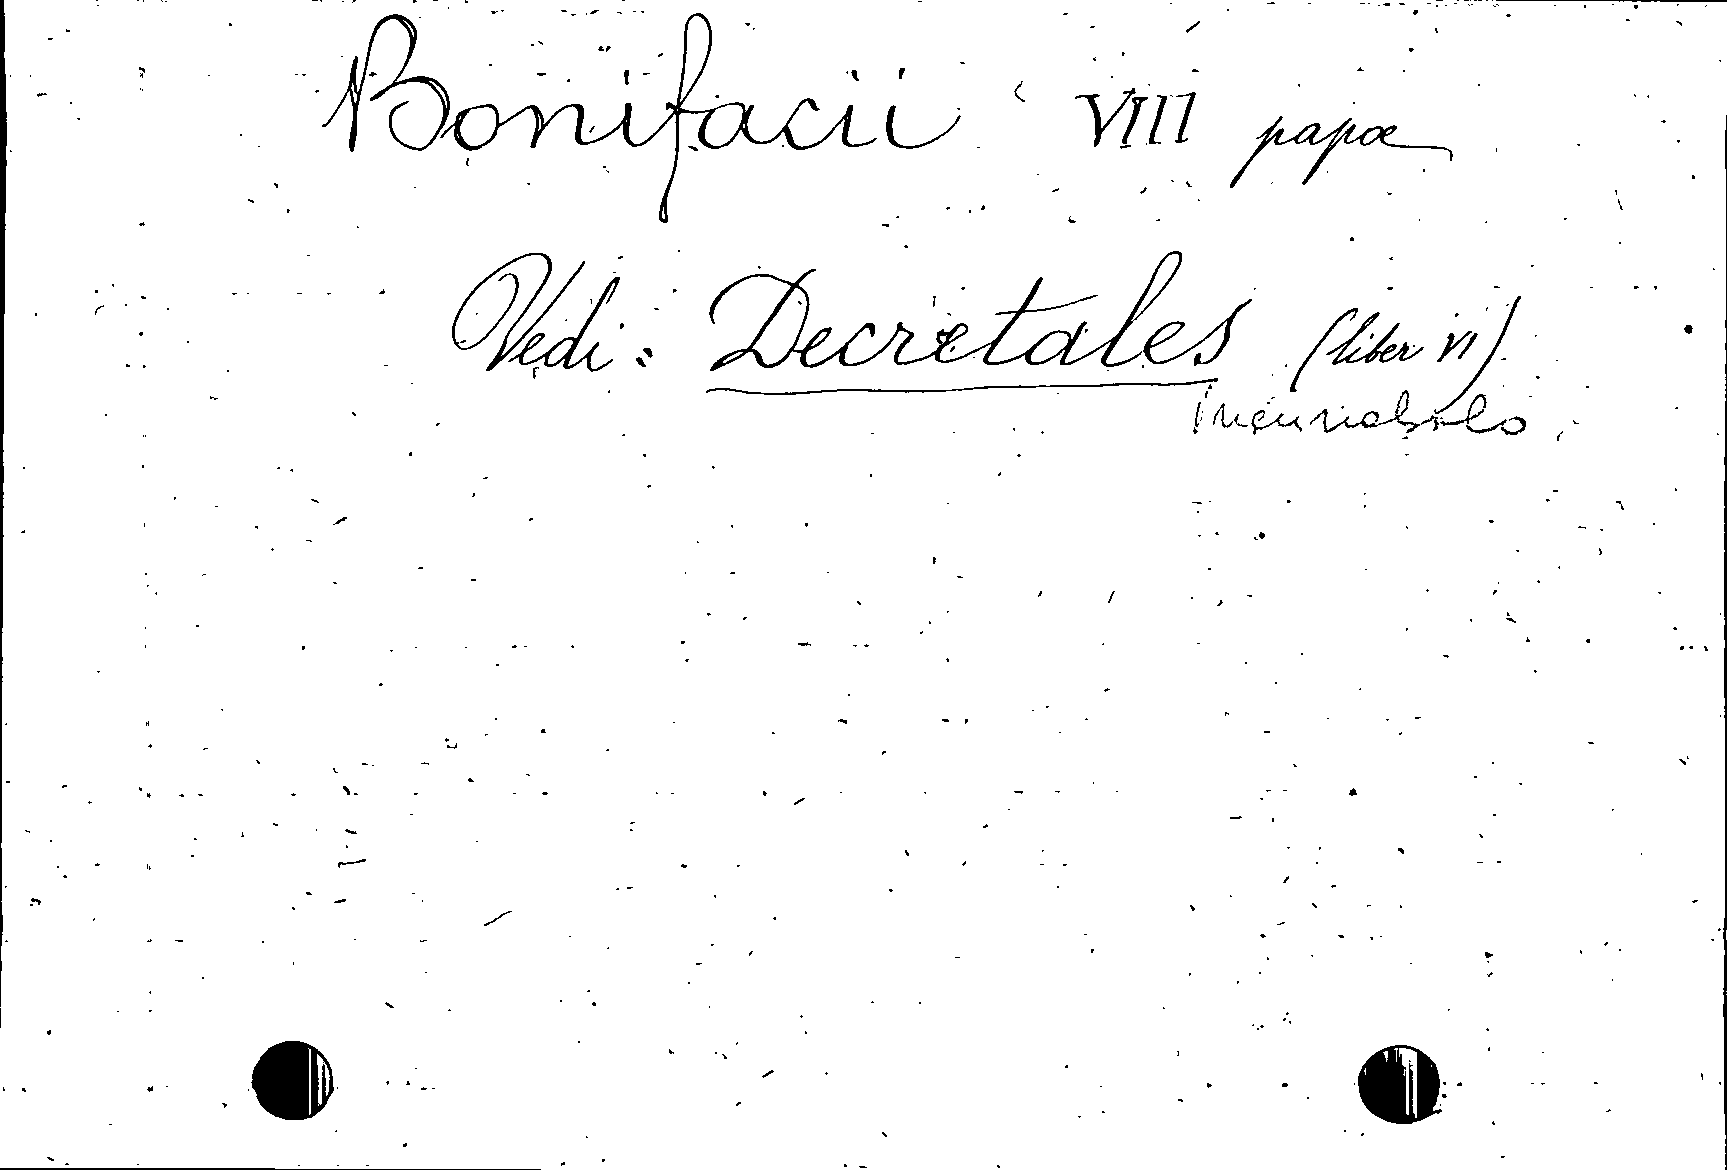 Bonifacii VIII papæ
Vedi: Decretales (liber VI)
Incunabolo